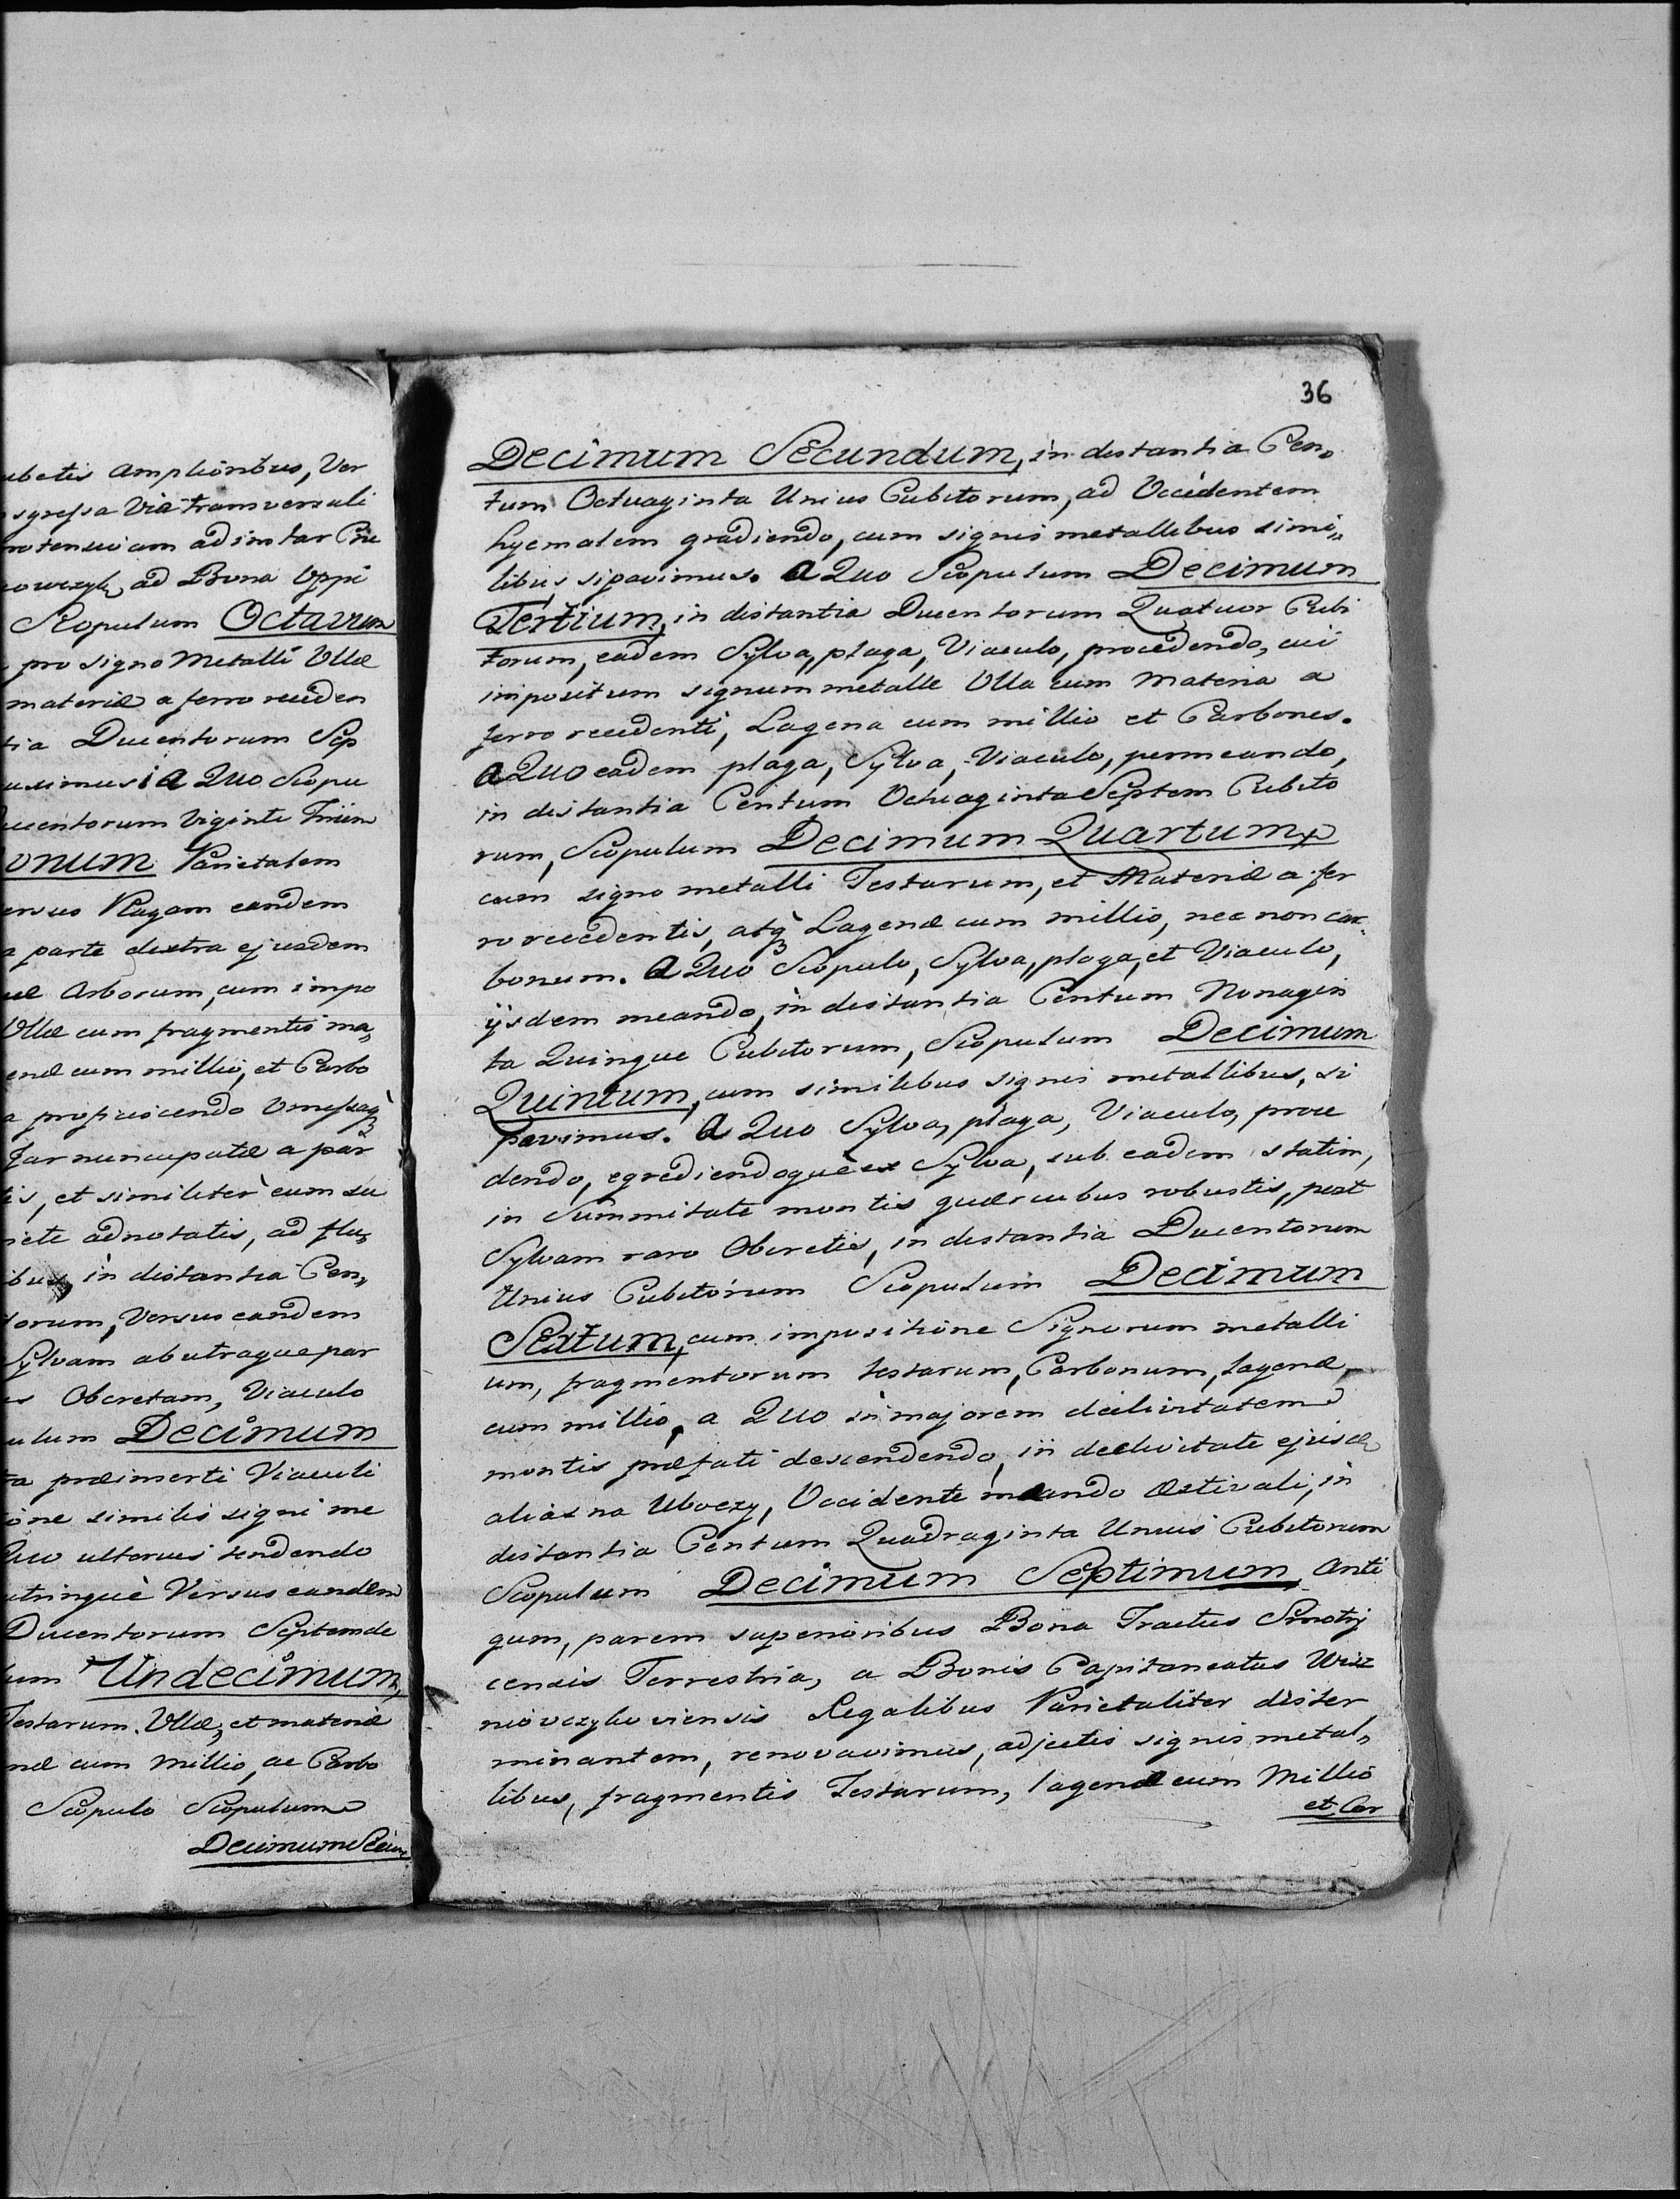 ubetis amplioribus, Ver
sgressa Via transversali
notensuiam ad instar
ad Bona Oppi
Scopulum Octavum
pro signo Metalli Ollæ
materiæ a ferro receden
tia Ducentorum Sep
A Quo Scopu
ucentorum Viginti Trium
onum Parietalem
ersus Plagam eandem
a parte dextra ejusdem
Arborum, cum impo
Ollæ cum fragmentis ma„
enæ cum millio, et Carbo
a proficiscendo
nuncupatæ a par
is, et similiter cum su
iete adnotatis, ad flu„
ibus, in distantia Cen„
torum, Versus eandem
Sylvam ab utraque par
Obcretam, Viaculo
ulum Decimum
ta præinserti Viaculi
ione similis signi me
Quo ulterius tendendo
utrinquè Versus eandem
Ducentorum Septemde
lum Undecimum,
Testarum, Ollæ, et materiæ
næ cum Millio, ac Carbo
Scopulo Scopulum
Decimum Secun
36
Decimum Secundum, in distantia Cen„
tum Octuaginta Unius Cubitorum, ad Occidentem
hyemalem gradiendo, cum signis metallibus simi„
libus sipavimus. A Quo Scopulum Decimum
Tertium, in distantia Ducentorum Quatuor Cubi
torum, eadem Sylva, plaga, Viaculo, procedendo, cui
impositum signum metalle Olla cum Materia a
ferro recedenti, Lagena cum millio et Carbones.
A Quo eadem plaga, Sylva, Viaculo, permeando,
in distantia Centum Octuaginta Septem Cubito
rum, Scopulum Decimum Quartum
cum signo metalli Testarum, et Materiæ a fer
ro recedentis, atq́ꝫ Lagenæ cum millio, nec non car„
bonum. A Quo Scopulo, Sylva, plaga, et Viaculo,
ijsdem meando, in distantia Centum Nonagin
ta Quinque Cubitorum, Scopulum Decimum
Quintum, cum similibus signis metallibus, si
pavimus. A Quo Sylva, plaga, Viaculo, proce
dendo, egrediendoquè ex Sylva, sub eadem statim,
in Summitate montis quærcubus robustis, post
Sylvam raro Obcretis, in distantia Ducentorum
Unius Cubitorum Scopulum Decimum
Sextum, cum impositione Signorum metalli
um, fragmentorum testarum, Carbonum, lagenæ
cum millio, a Quo in majorem declivitatem
montis præfati descendendo, in declivitate ejusd
alias na Uboczy, Occidente meando Æstivali, in
distantia Centum Quadraginta Unius Cubitorum
Scopulum Decimum Septimum, Anti
quum, parem superioribus Bona Tractus Smotry
censis Terrestria, a Bonis Capitaneatus
Regalibus Parietaliter dister
minantem, renovavimus, adjectis signis metal„
libus, fragmentis Testarum, lagenæ cum Millio
et Car